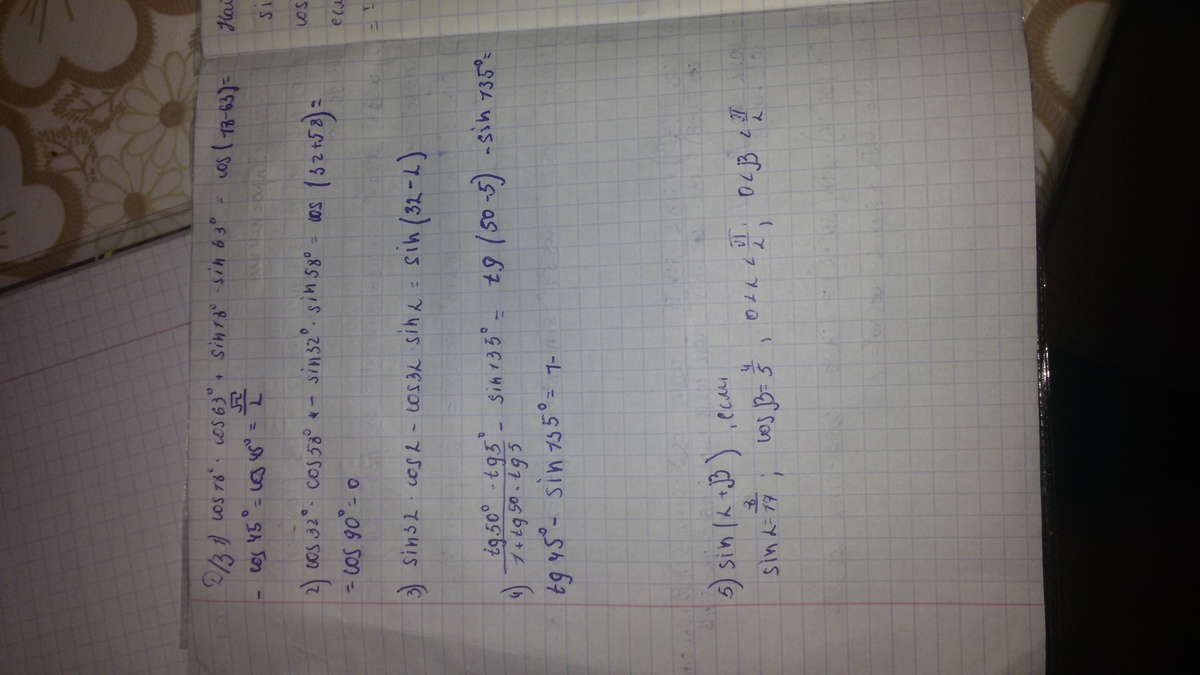 Д/З 1) cos 18° · cos 63° + sin 18° · sin 63° = cos (18-63) =
- cos 45° = cos 45° = √2/2
2) cos 32° · cos 58° - sin 32° · sin 58° = cos (32+58) =
= cos 90° = 0
3) sin 3α · cos α - cos 3α sin α = sin (3α - α)
4) (tg 50° - tg 5°)/(1 + tg 50 · tg 5) - sin 135° = tg (50-5) - sin 135° =
tg 45° - sin 135° = 1-
5) sin (α + β), если
sin α = 8/17; cos β = 4/5, 0 < α < π/2, 0 < β < π/2
Най
si
cos
есл
=